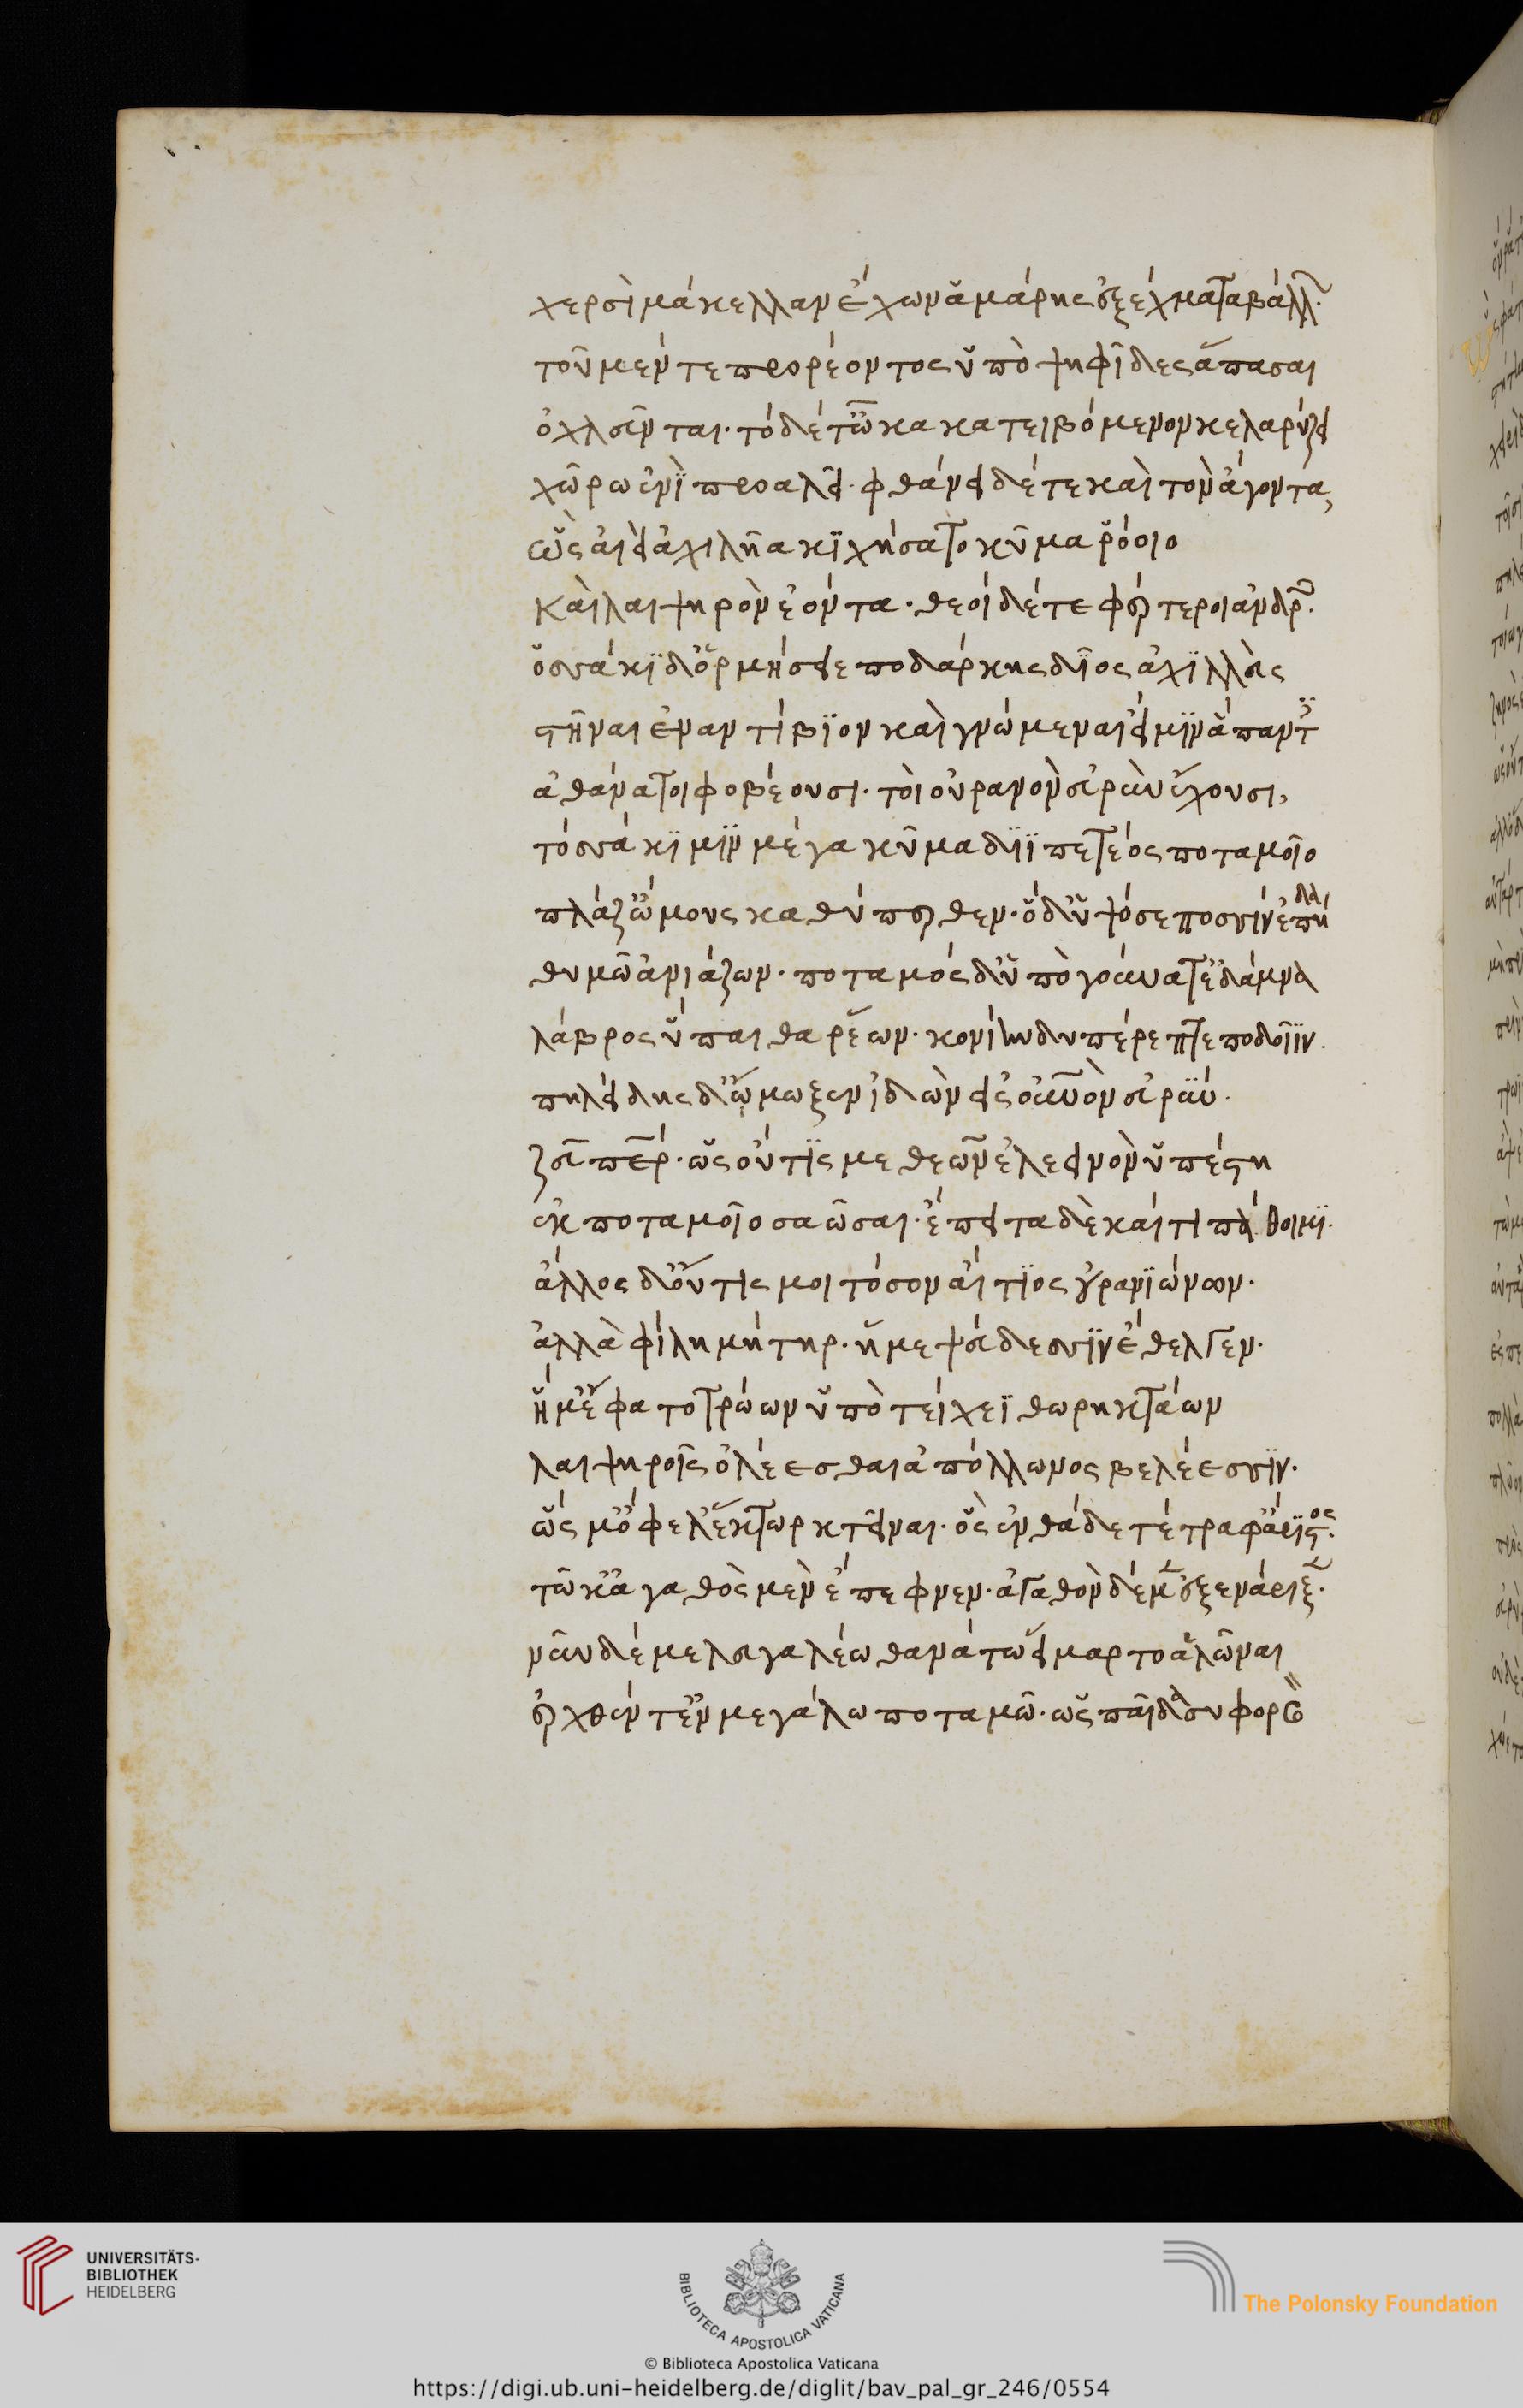 χερσὶ μάκελλαν ἔχων ἀμάρης ἐξ ἔχματα βάλλ
τοῦ μέν τε προρέοντος ὑπὸ ψηφῖδες ἅπασαι
ὀχλεῦνται· τὸ δέ τ' ὦκα κατειβόμενον κελαρύζει
χώρω ἐνὶ προαλεῖ· φθάνει δέ τε καὶ τὸν ἄγοντα,
ὣς αἰεὶ ἀχιλῆα κιχήσατο κῦμα ῥόοιο
καὶ λαιψηρὸν ἐόντα· θεοὶ δέ τε φέρτεροι ἀνδρ.
ὁσσάκι δ' ὁρμήσειε ποδάρκης δῖος ἀχιλλεὺς
στῆναι ἐναντίβιον καὶ γνώμεναι εἴ μιν ἅπαντ
ἀθάνατοι φοβέουσι· τοὶ οὐρανὸν εὐρὺν ἔχουσι,
τοσσάκι μιν μέγα κῦμα διιπετέος ποταμοῖο
πλάζ' ὤμους καθύπερθεν· ὁ δ' ὑψόσε ποσσὶν ἐπήδα
θυμῶ ἀνιάζων· ποταμὸς δ' ὑπὸ γούνατ' ἐδάμνα
λάβρος ὕπαιθα ῥέων· κονίην δ' υπέρεπτε ποδοῖιν.
πηλείδης δ' ὤμωξεν ἰδὼν εἰς οὐρανὸν εὐρύν.
ζεῦ περ· ὡς οὔτίς με θεῶν ἐλεεινὸν ὑπέστη
ἐκ ποταμοῖο σαῶσαι· ἔπειτα δὲ καί τι πάθοιμι.
ἄλλος δ' οὔτις μοι τόσον αἴτιος οὐρανιώνων·
ἀλλὰ φίλη μήτηρ· ἥ με ψεύδεσσιν ἔθελγεν·
ἥ μ' ἔφατο τρώων ὑπὸ τείχεϊ θωρηκτάων
λαιψηροῖς ὀλέεσθαι ἀπόλλωνος βελέεσσιν·
ὥς μ' ὄφελ' ἕκτωρ κτεῖναι· ὃς ἐνθάδε τέτραφ' ἄριστος.
τῶ κ' ἀγαθὸς μὲν ἔπεφνεν· ἀγαθὸν δέ κ' ἐξενάριξ·
νῦν δέ με λευγαλέω θανάτω εἵμαρτο ἁλῶναι
ἐρχθέντ' ἐν μεγάλω ποταμῶ· ὡς παῖδα συφορβὸ
UNIVERSITÄTS-
BIBLIOTHEK
HEIDELBERG
BIBLIOTECA APOSTOLICA VATICANA
The Polonsky Foundation
© Biblioteca Apostolica Vaticana
https://digi.ub.uni-heidelberg.de/diglit/bav_pal_gr_246/0554